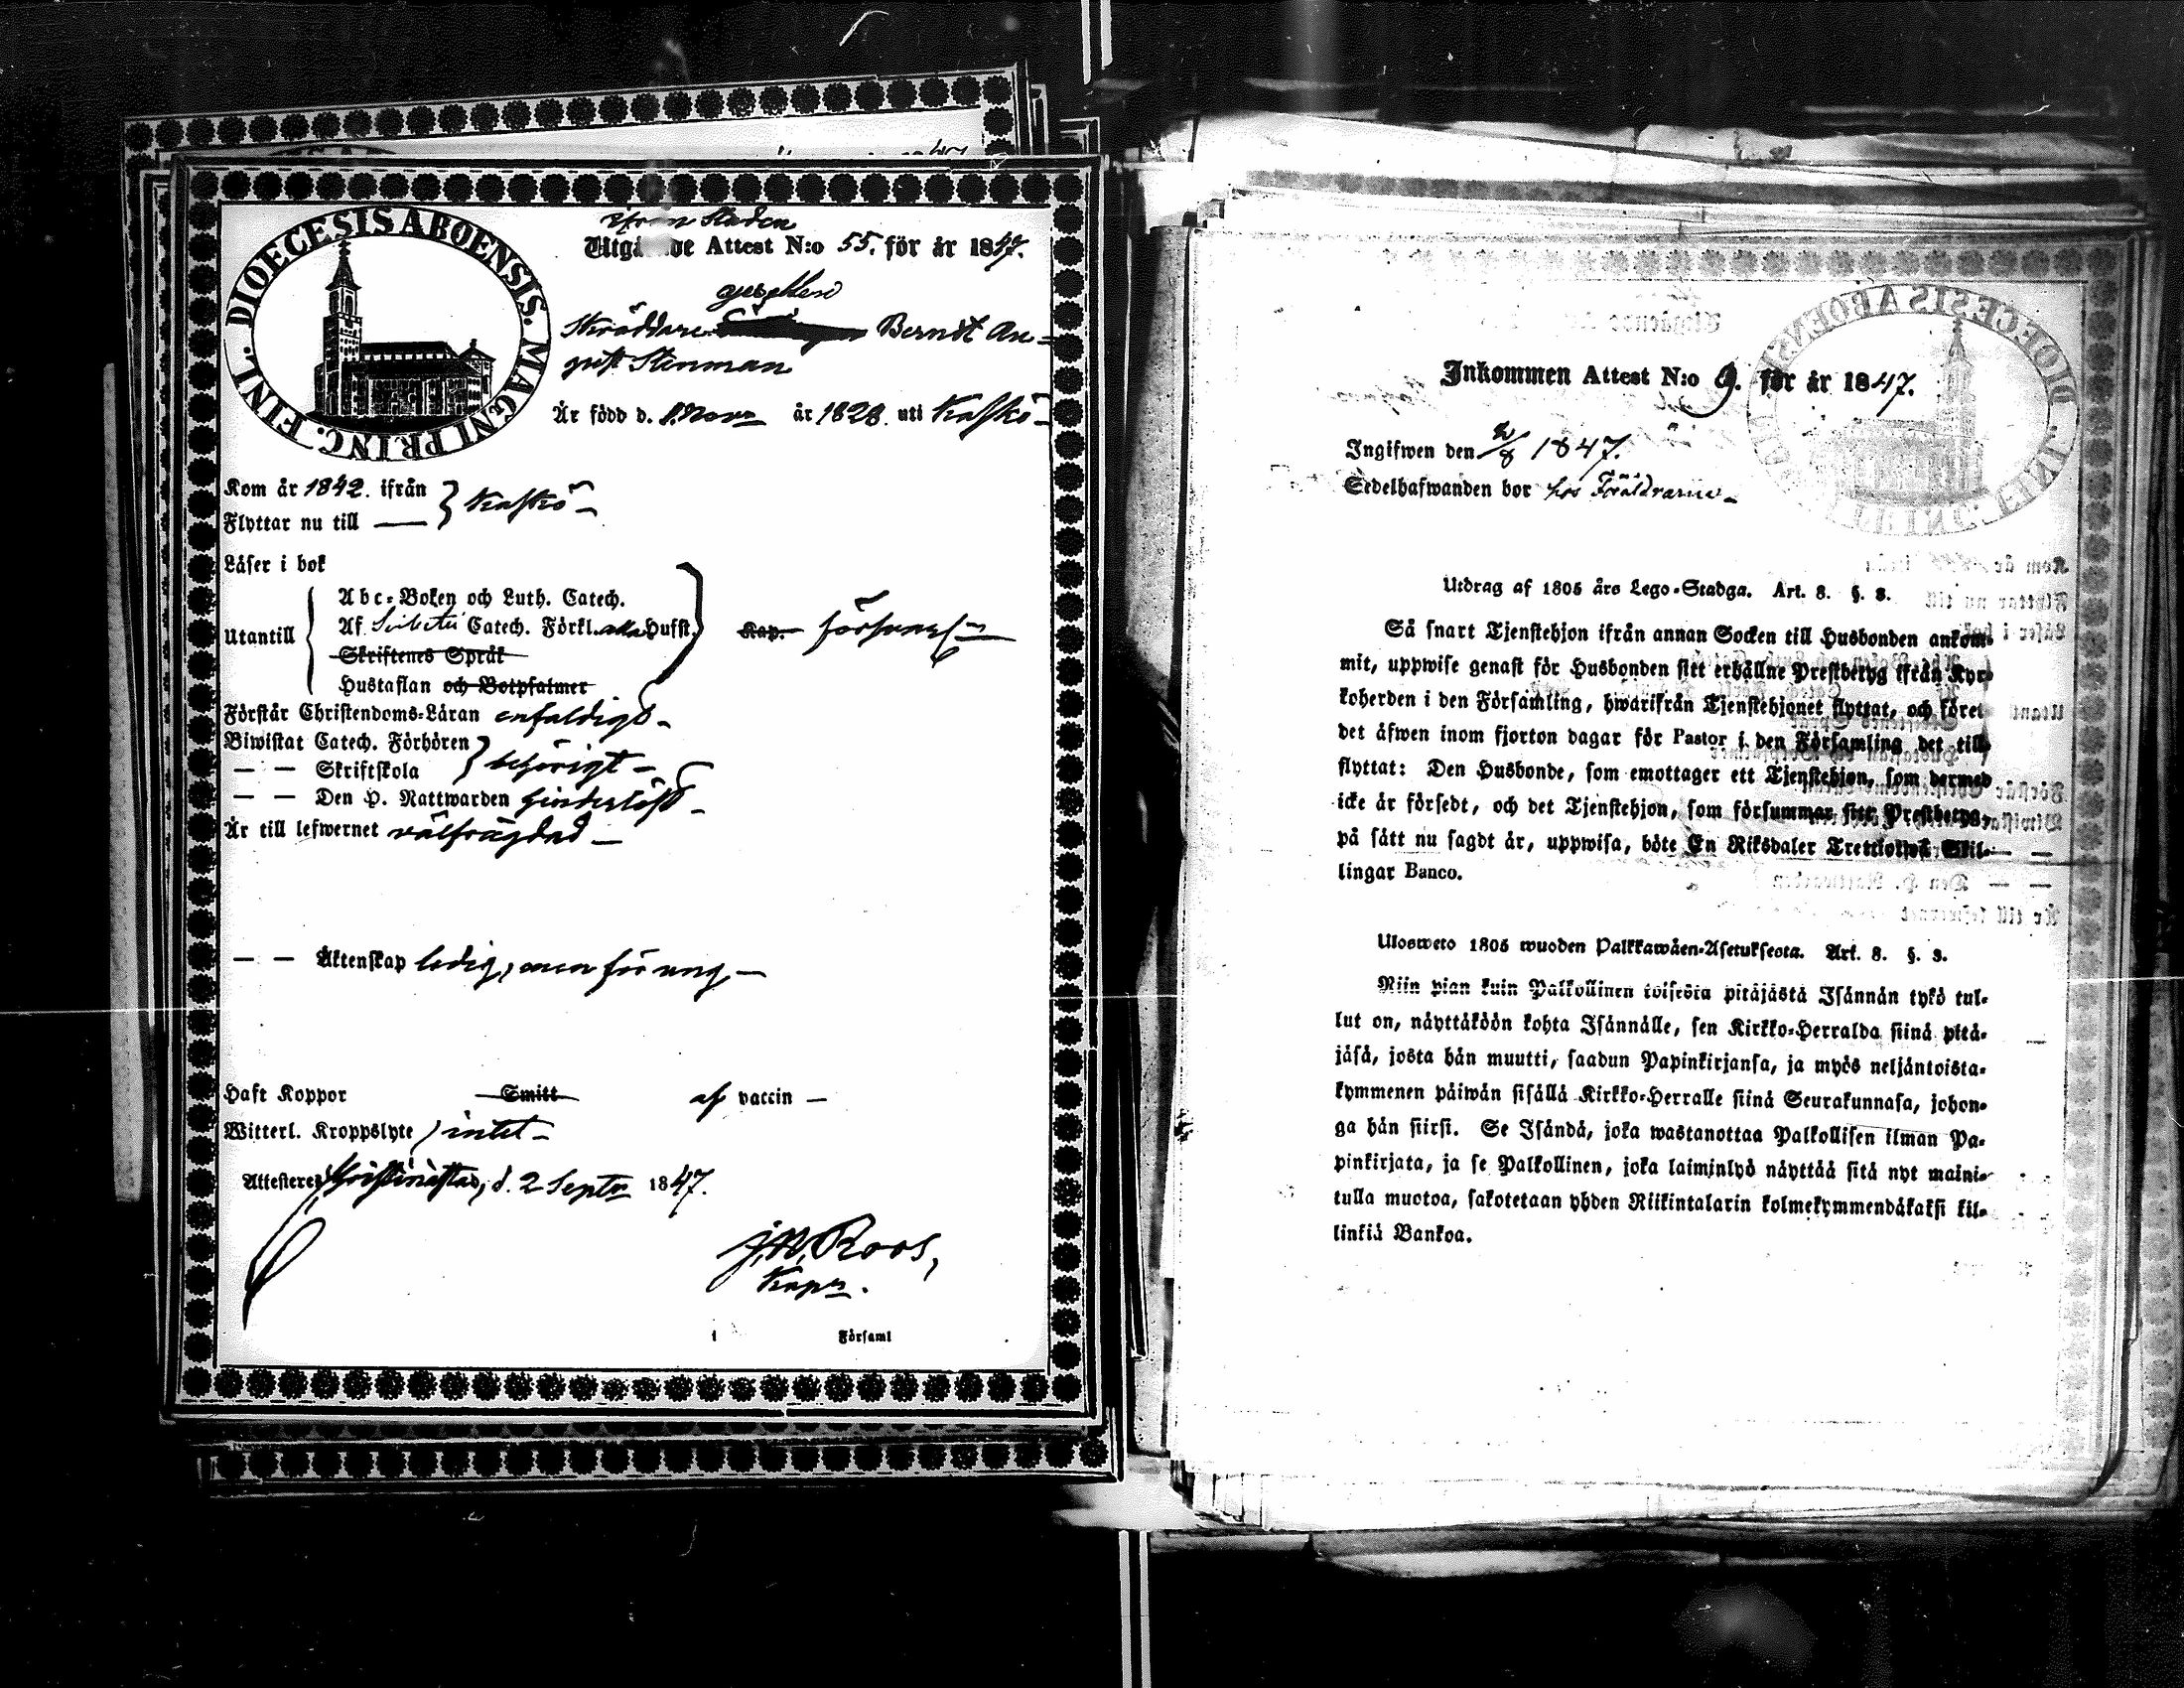 DIOECESIS ABOENSIS. MAGNI PRINC. FINL.
ifrån Staden
Utgående Attest N:o 55. för år 1847.
gesellen
Skräddare Berndt Au=
gust Stenman
Är född d. 1. Novr år 1828. uti Kaskö
Kom år 1842. ifrån } Kaskö
Flyttar nu till —
Läser i bok
Utantill { Abc-Boken och Luth. Catech.
Af Svibelii Catech. Förkl. alla Hufst.
Kap. försvarl.
Skriftenes Språk
Hustaflan och Botpsalmer
Förstår Christendoms-Läran enfaldigt
Biwistat Catech. Förhören } behörigt
— — Skriftskola
— — Den H. Nattwarden hinderlöst
Är till lefwernet välfrägdad
— — Äktenskap ledig, men för ung,
Haft Koppor Smitt af vaccin
Witterl. Kroppslyte intet
Attesterer Christinæstad, d. 2 Septr 1847.
J. N. Roos,
Kapn.
Församl
Inkommen Attest N:o 9. för år 1847.
Ingifwen den 1847.
Sedelhafwanden bor hos Föräldrarne
Utdrag af 1805 års Lego-Stadga. Art. 8. §. 3.
Så snart Tjenstehjon ifrån annan Socken till Husbonden ankom-
mit, uppwise genast för Husbonden sitt erhållne Prestbetyg ifrån Kyr-
koherden i den Församling, hwarifrån Tjenstehjonet flyttat, och förete
det äfwen inom fjorton dagar för Pastor i den Församling det till-
flyttat: Den Husbonde, som emottager ett Tjenstehjon, som dermed
icke är försedt, och det Tjenstehjon, som försummar sitt Prestbetyg,
på sätt nu sagdt är, uppwisa, böte En Riksdaler Trettiotwå Skil-
lingar Banco.
Ulosweto 1805 wuoden Palkkawäen-Asetuksesta. Art. 8. §. 3.
Niin pian kuin Palkollinen toisesta pitäjästä Isännän tykö tul-
lut on, näyttäköön kohta Isännälle, sen Kirkko-Herralda siinä pitä-
jäsä, josta hän muutti, saadun Papinkirjansa, ja myös neljäntoista-
kymmenen päiwän sisällä Kirkko-Herralle siinä Seurakunnasa, johon-
ga hän siirsi. Se Isändä, joka wastanottaa Palkollisen ilman Pa-
pinkirjata, ja se Palkollinen, joka laiminlyö näyttää sitä nyt maini-
tulla muotoa, sakotetaan yhden Riikintalarin kolmekymmendäkaksi kil-
linkiä Bankoa.